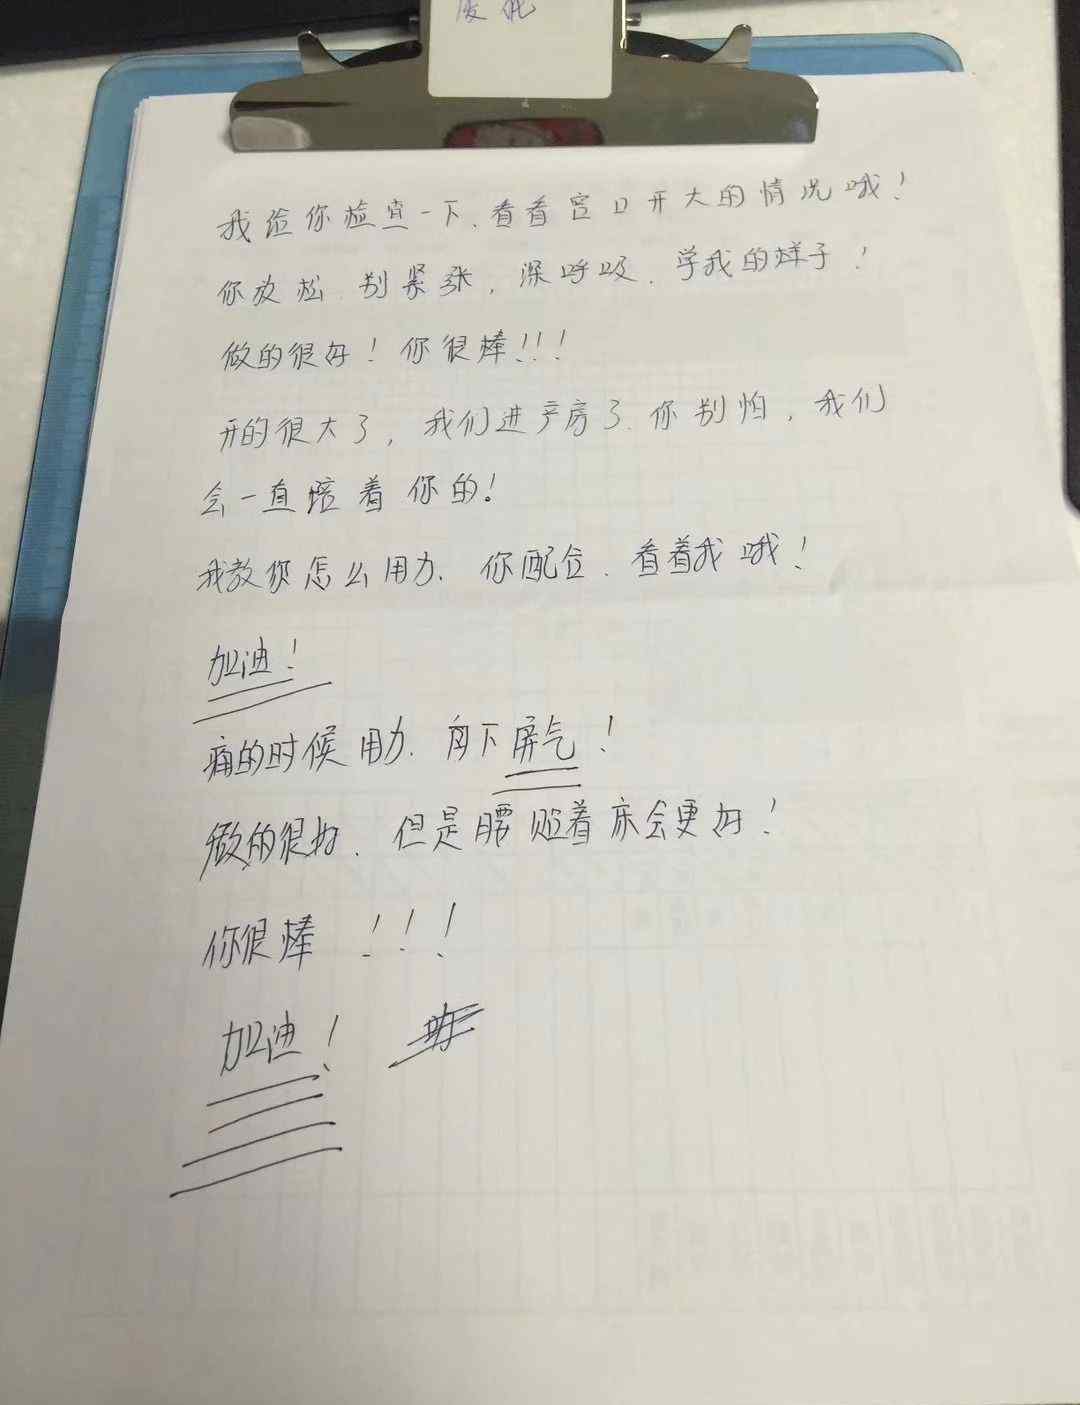 我给你检查一下.看看宫口开大的情况哦!
你放松.别紧张,深呼吸.学我的样子!
做的很好!你很棒!!!
开的很大了,我们进产房了.你别怕,我们
会一直陪着你的!
我教你怎么用力.你配合.看着我哦!
加油!
痛的时候用力.向下屏气!
做的很好.但是腰贴着床会更好!
你很棒!!!
加油!